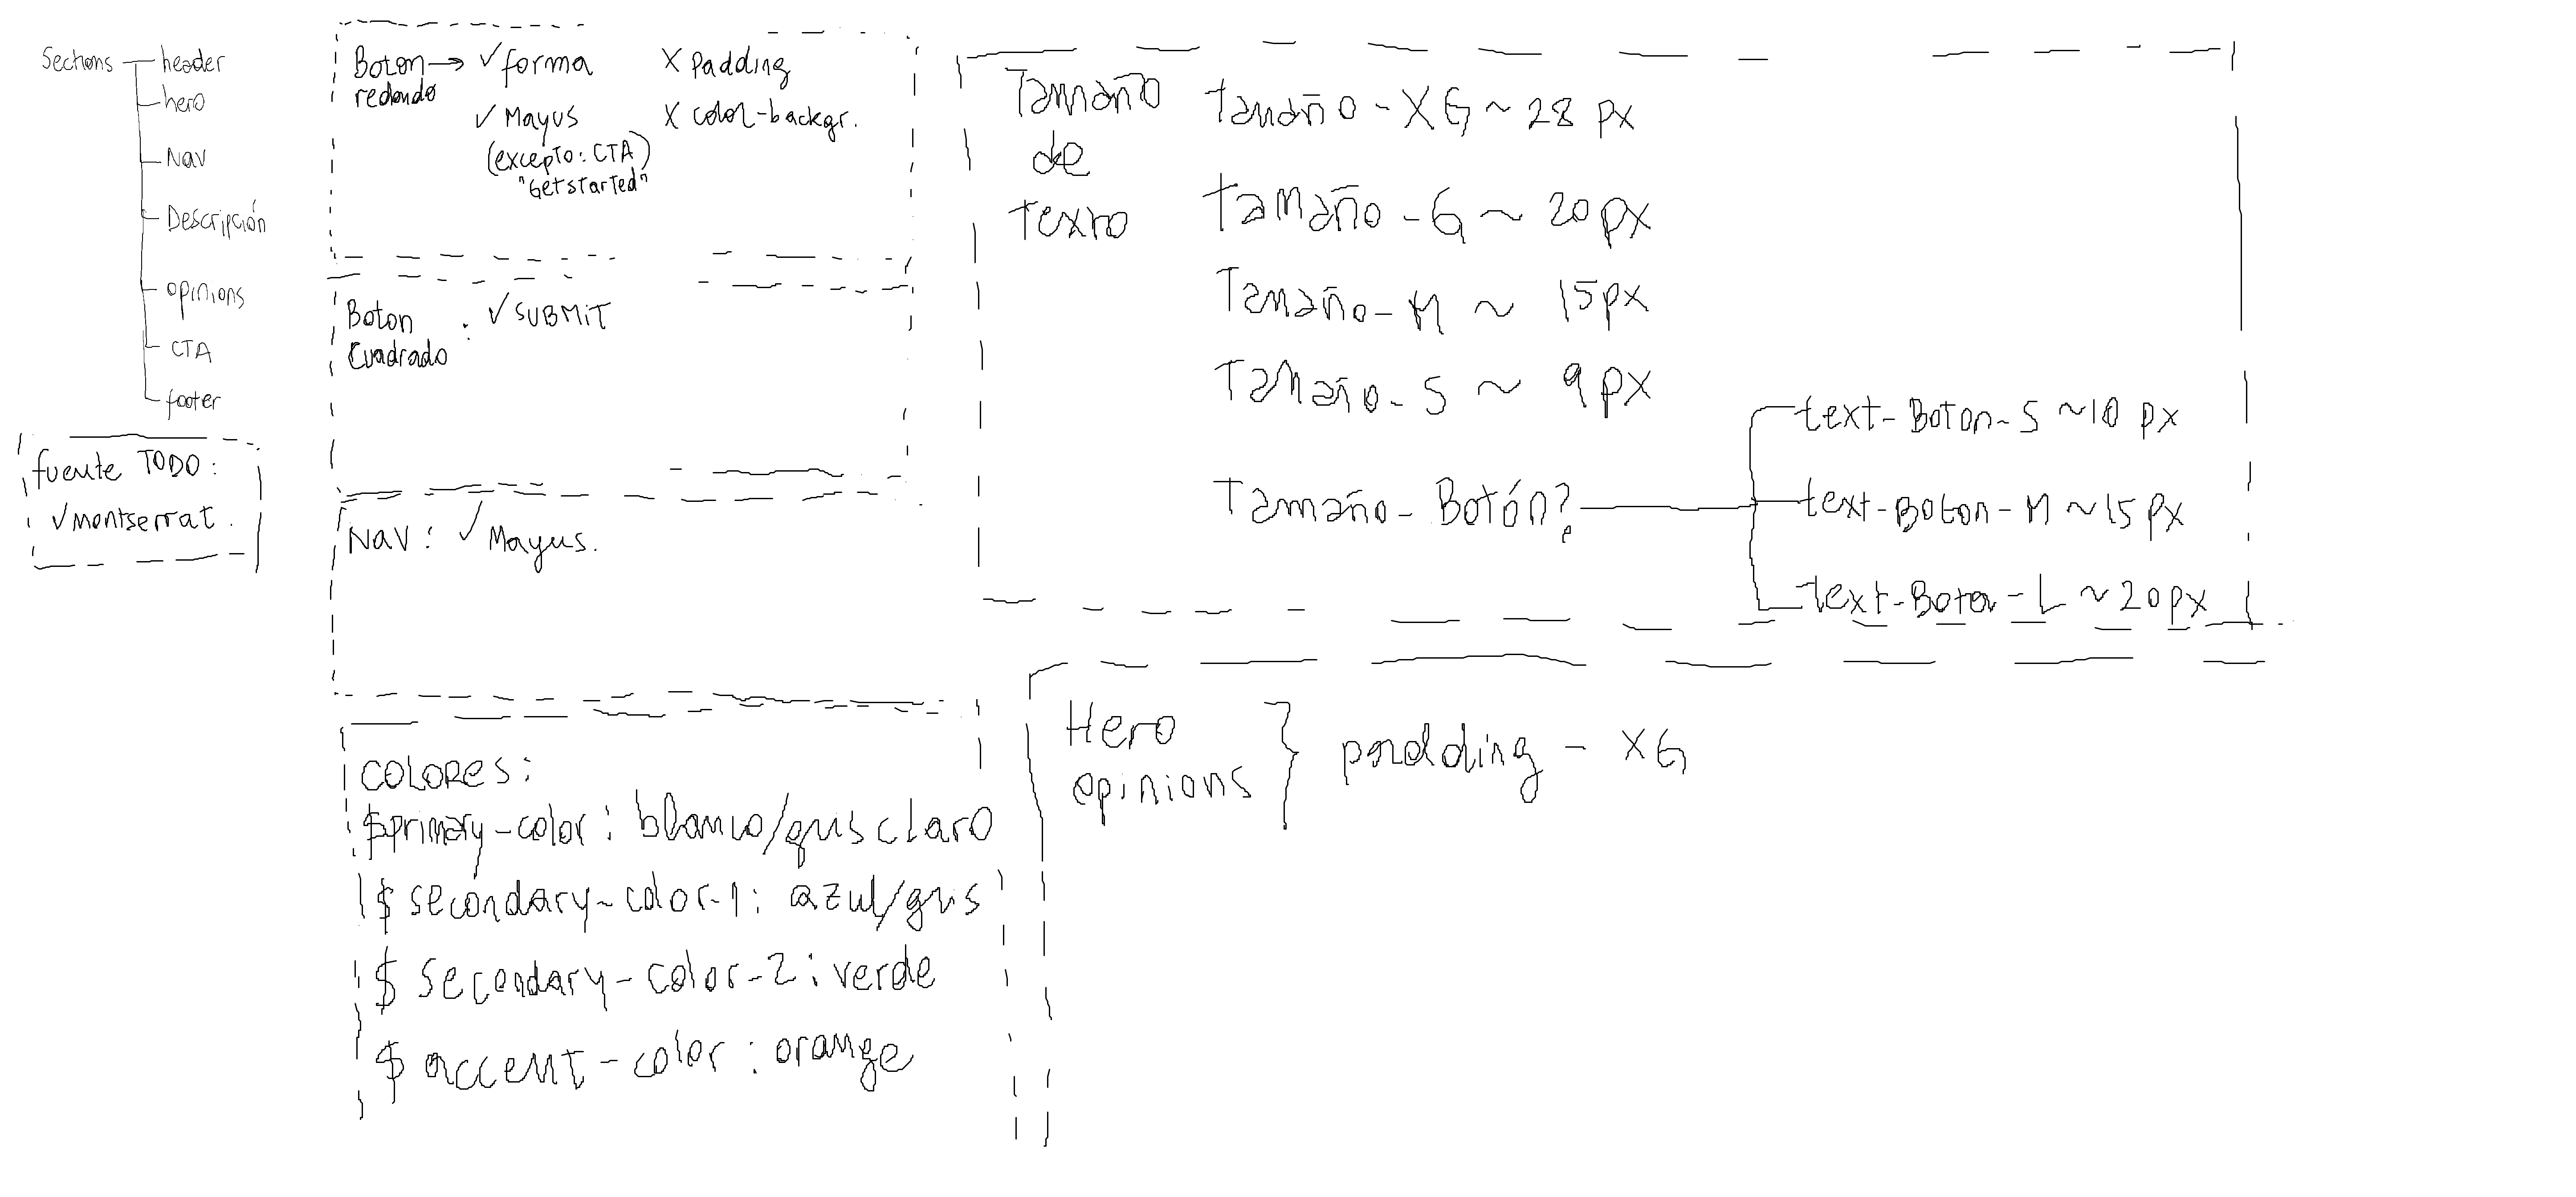 Sections
header
hero
Nav
Descripción
opinions
CTA
footer
fuente TODO:
✓ Montserrat.
Boton → ✓ forma X Padding
redondo
✓ Mayus X color-backgr.
(excepto: CTA)
"Getstarted"
Boton : ✓ SUBMIT
Cuadrado
Nav: ✓ Mayus.
COLORES:
$primary-color: blanco/gris claro
$ secondary-color-1: azul/gris
$ secondary-color-2: verde
$ accent-color: orange
Tamaño
de
Texto
Tamaño-XG ~ 28 px
Tamaño-G ~ 20px
Tamaño-M ~ 15px
Tamaño-S ~ 9px
Tamaño-Botón?
text-Boton-S ~10 px
text-Boton-M ~15 px
text-Boton-L ~20px
Hero
opinions
padding - XG